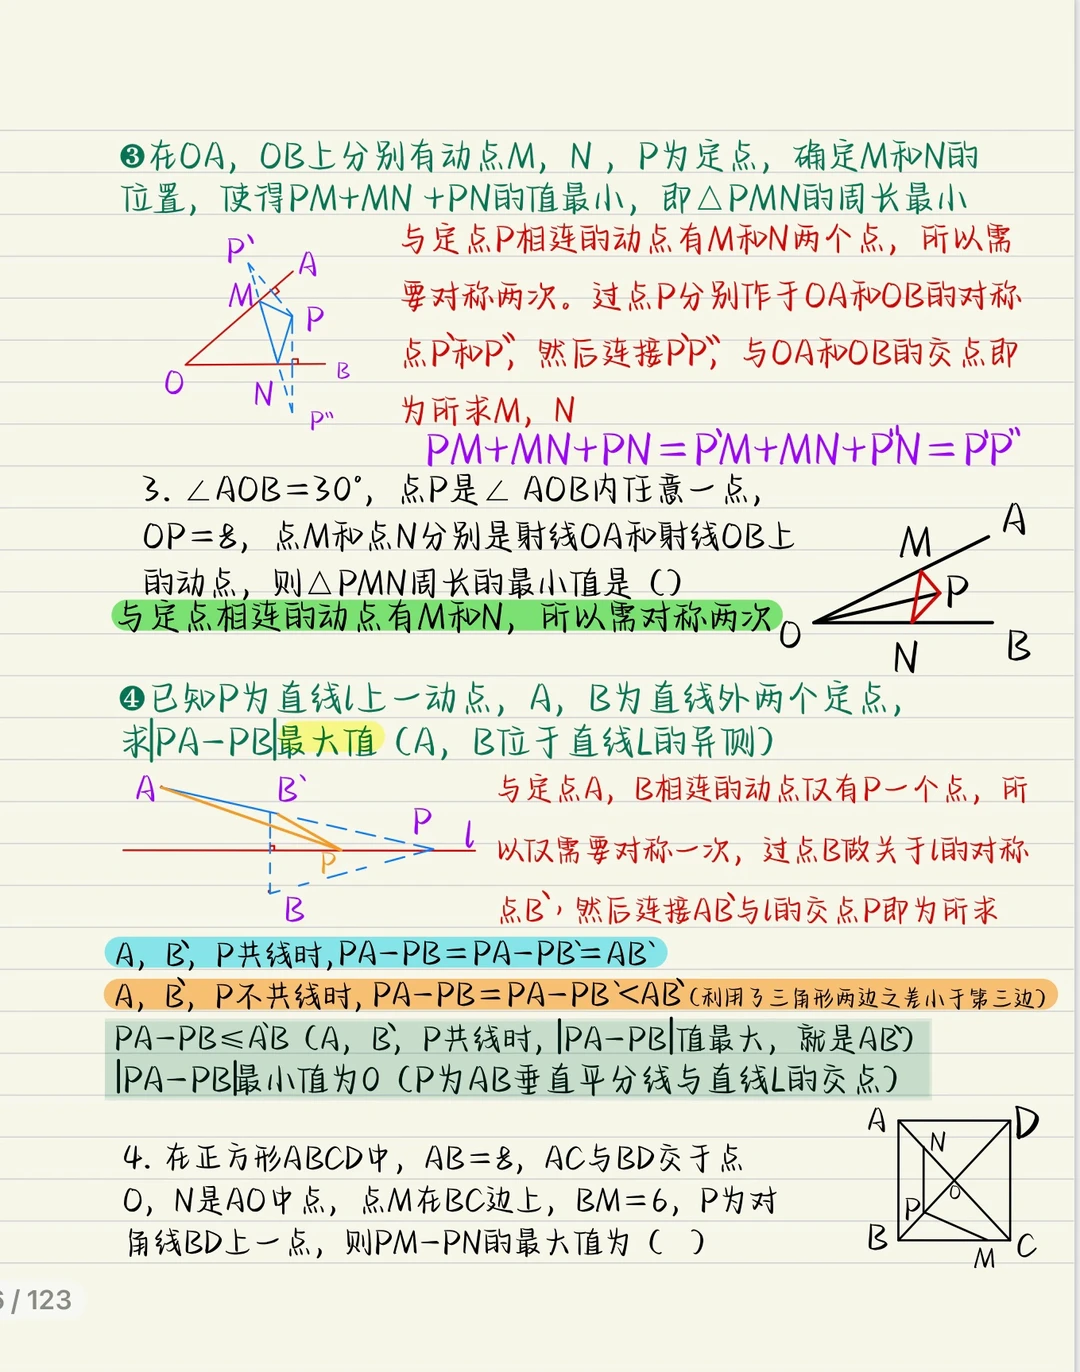 ❸在OA，OB上分别有动点M，N，P为定点，确定M和N的
位置，使得PM+MN+PN的值最小，即△PMN的周长最小
与定点P相连的动点有M和N两个点，所以需
要对称两次。过点P分别作于OA和OB的对称
点P`和P``，然后连接P`P``，与OA和OB的交点即
为所求M，N
P`
A
M
P
O
N
B
P``
PM+MN+PN=P`M+MN+P``N=P`P``
3. ∠AOB=30°，点P是∠AOB内任意一点，
OP=8，点M和点N分别是射线OA和射线OB上
的动点，则△PMN周长的最小值是（）
与定点相连的动点有M和N，所以需对称两次
A
M
P
O
N
B
❹已知P为直线l上一动点，A，B为直线外两个定点，
求|PA-PB|最大值（A，B位于直线L的异侧）
A
B`
P
l
P
B
与定点A，B相连的动点仅有P一个点，所
以仅需要对称一次，过点B做关于l的对称
点B`，然后连接AB`与l的交点P即为所求
A，B`，P共线时，PA-PB=PA-PB`=AB`
A，B`，P不共线时，PA-PB=PA-PB`<AB`（利用了三角形两边之差小于第三边）
PA-PB≤A`B（A，B`，P共线时，|PA-PB|值最大，就是AB`）
|PA-PB|最小值为0（P为AB垂直平分线与直线L的交点）
4. 在正方形ABCD中，AB=8，AC与BD交于点
O，N是AO中点，点M在BC边上，BM=6，P为对
角线BD上一点，则PM-PN的最大值为（ ）
A
D
N
O
P
B
M
C
6/123